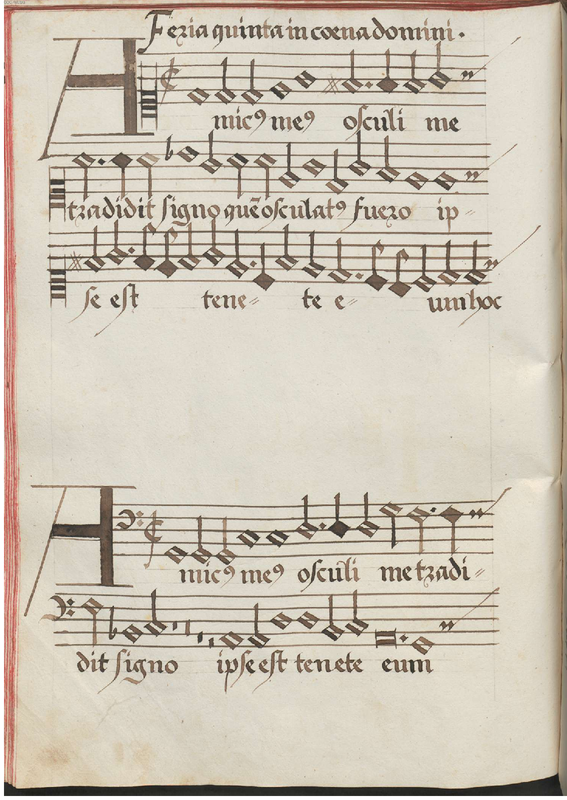 Feria quinta in coena domini.
Amicꝰ meꝰ osculi me
tradidit signo quē osculatꝰ fuero ip-
se est tene- te e- um hoc
Amicꝰ meꝰ osculi me tradi-
dit signo ipse est tenete eum